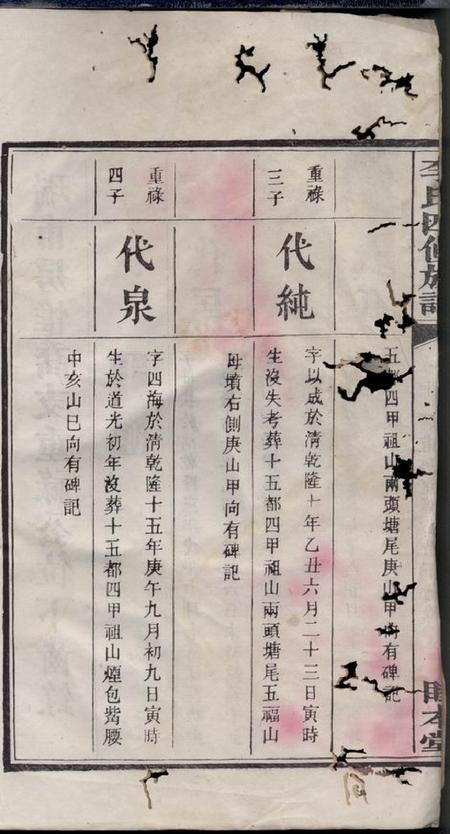 李氏四修族譜
五都四甲祖山兩頭塘尾庚山甲向有碑記
重祿
三子
代純
字以成於清乾隆十年乙丑六月二十三日寅時
生沒失考葬十五都四甲祖山兩頭塘尾五福山
母墳右側庚山甲向有碑記
重祿
四子
代泉
字四海於清乾隆十五年庚午九月初九日寅時
生於道光初年沒葬十五都四甲祖山煙包觜腰
中亥山巳向有碑記